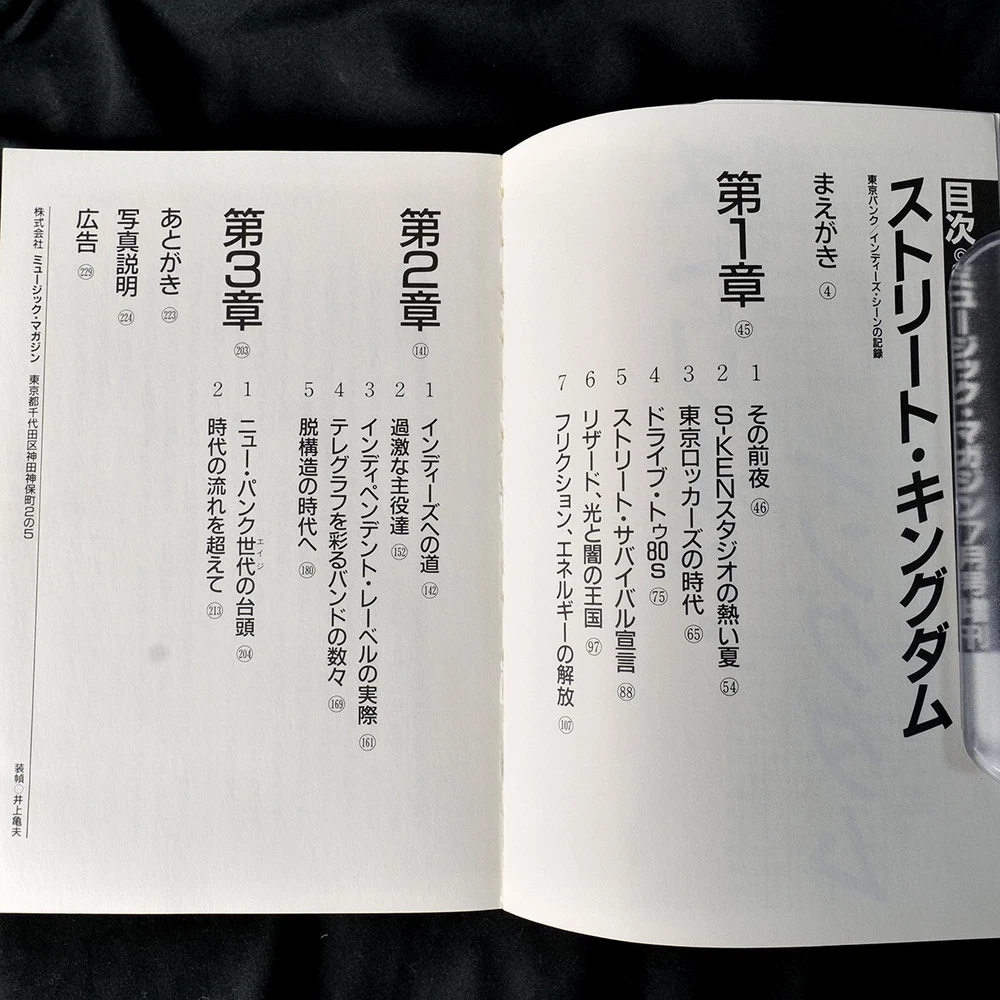 目次
ミュージック・マガジン7月号増刊
ストリート・キングダム
東京パンク/インディーズ・シーンの記録
まえがき ④
第1章 ㊺
1 その前夜 ㊻
2 S-KENスタジオの熱い夏 54
3 東京ロッカーズの時代 65
4 ドライブ・トゥ80s 75
5 ストリート・サバイバル宣言 88
6 リザード、光と闇の王国 97
7 フリクション、エネルギーの解放 107
第2章 141
1 インディーズへの道 142
2 過激な主役達 152
3 インディペンデント・レーベルの実際 161
4 テレグラフを彩るバンドの数々 169
5 脱構造の時代へ 180
第3章 203
1 ニュー・パンク世代の台頭 204
エイジ
2 時代の流れを超えて 213
あとがき 223
写真説明 224
広告 229
株式会社 ミュージック・マガジン 東京都千代田区神田神保町2の5
装幀○井上亀夫